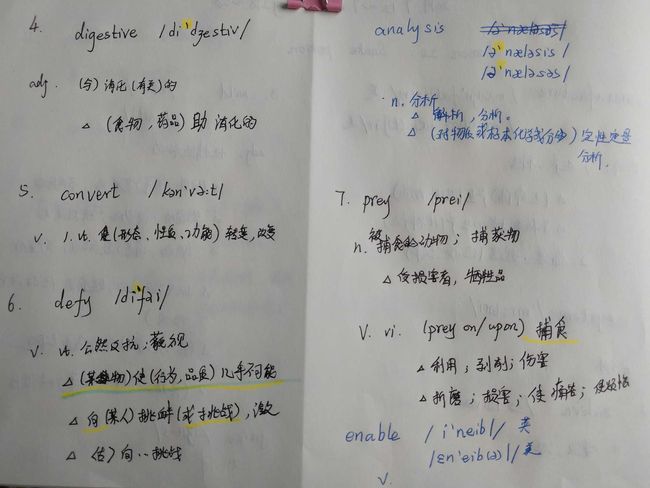 4. digestive /di'dʒestiv/
adj. (关)消化(有关)的
△ (食物,药品)助消化的
5. convert /kən'və:t/
v. 1. vt. 使(形态、性质、功能)转变,改变
6. defy /di'fai/
v. vt. 公然反抗;藐视
△ (某事物)使(行为,品质)几乎不可能
△ 向(某人)挑衅(求挑战),激
△ 〈古〉向…挑战
analysis /ə'næləsəs/
/ə'næləsis/
/ə'næləsəs/
n. 分析
△ 解析,分析。
△ (对物质或样本化学成分的)定性定量
分析.
7. prey /prei/
n. 被捕食的动物;捕获物
△ 受损害者,牺牲品
V. vi. (prey on/upon) 捕食
△ 利用;剥削;伤害
△ 折磨;损害;使痛苦;使烦恼
enable /i'neibl/ 英
/ɛn'eib(ə)l/ 美
v.